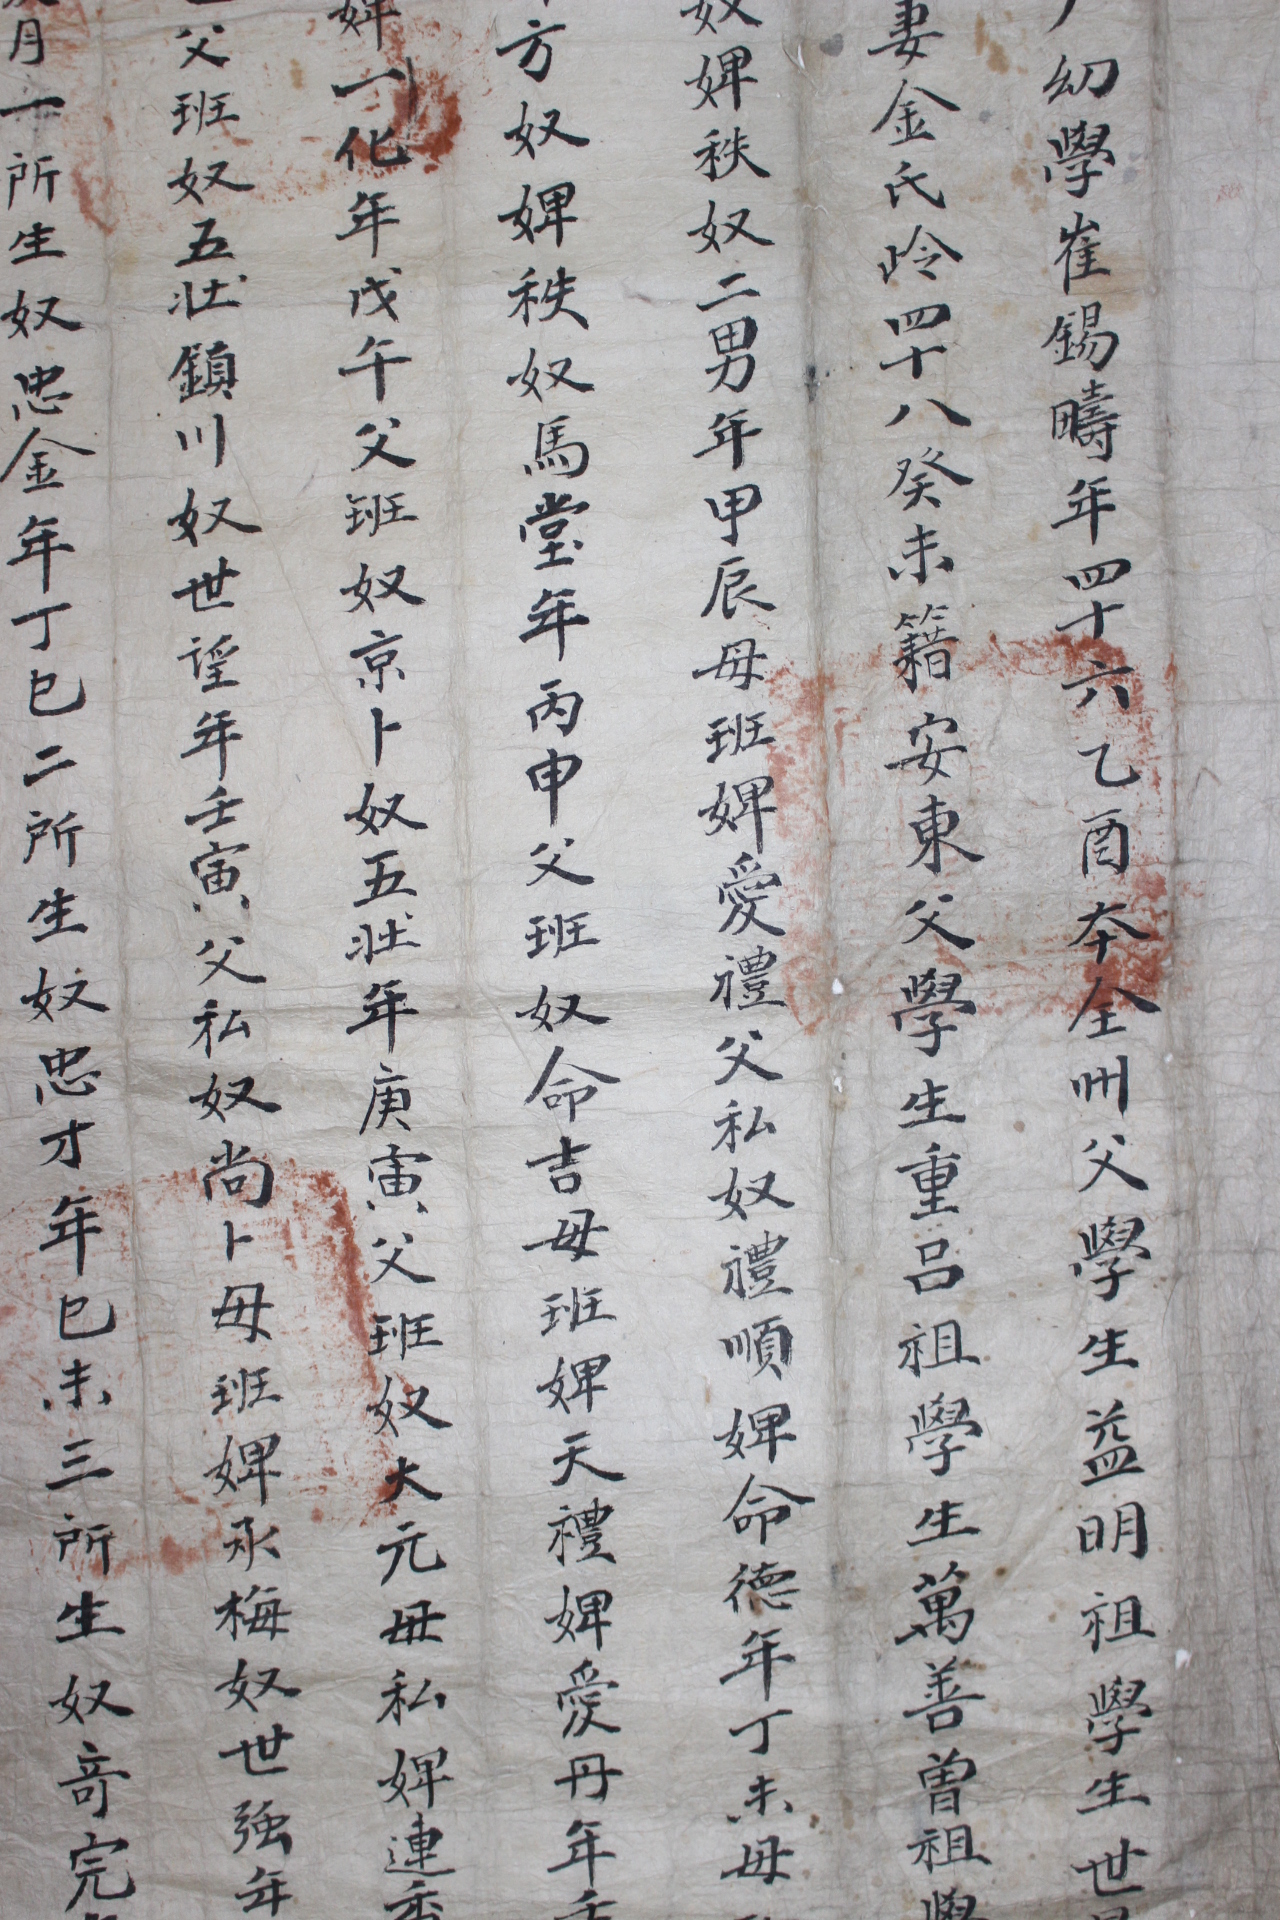 幼學崔錫疇年四十六乙酉本全州父學生益明祖學生世
妻金氏岭四十八癸未籍安東父學生重呂祖學生萬善曾祖學
奴婢秩奴二男年甲辰母班婢愛禮父私奴禮順婢命德年丁未母
方奴婢秩奴馬堂年丙申父班奴命吉母班婢天禮婢愛丹年壬
婢一化年戊午父班奴京卜奴五壯年庚寅父班奴大元母私婢連香
父班奴五壯鎮川奴世望年壬寅父私奴尚卜母班婢永梅奴世強年
月一所生奴忠金年丁巳二所生奴忠才年已未三所生奴奇完